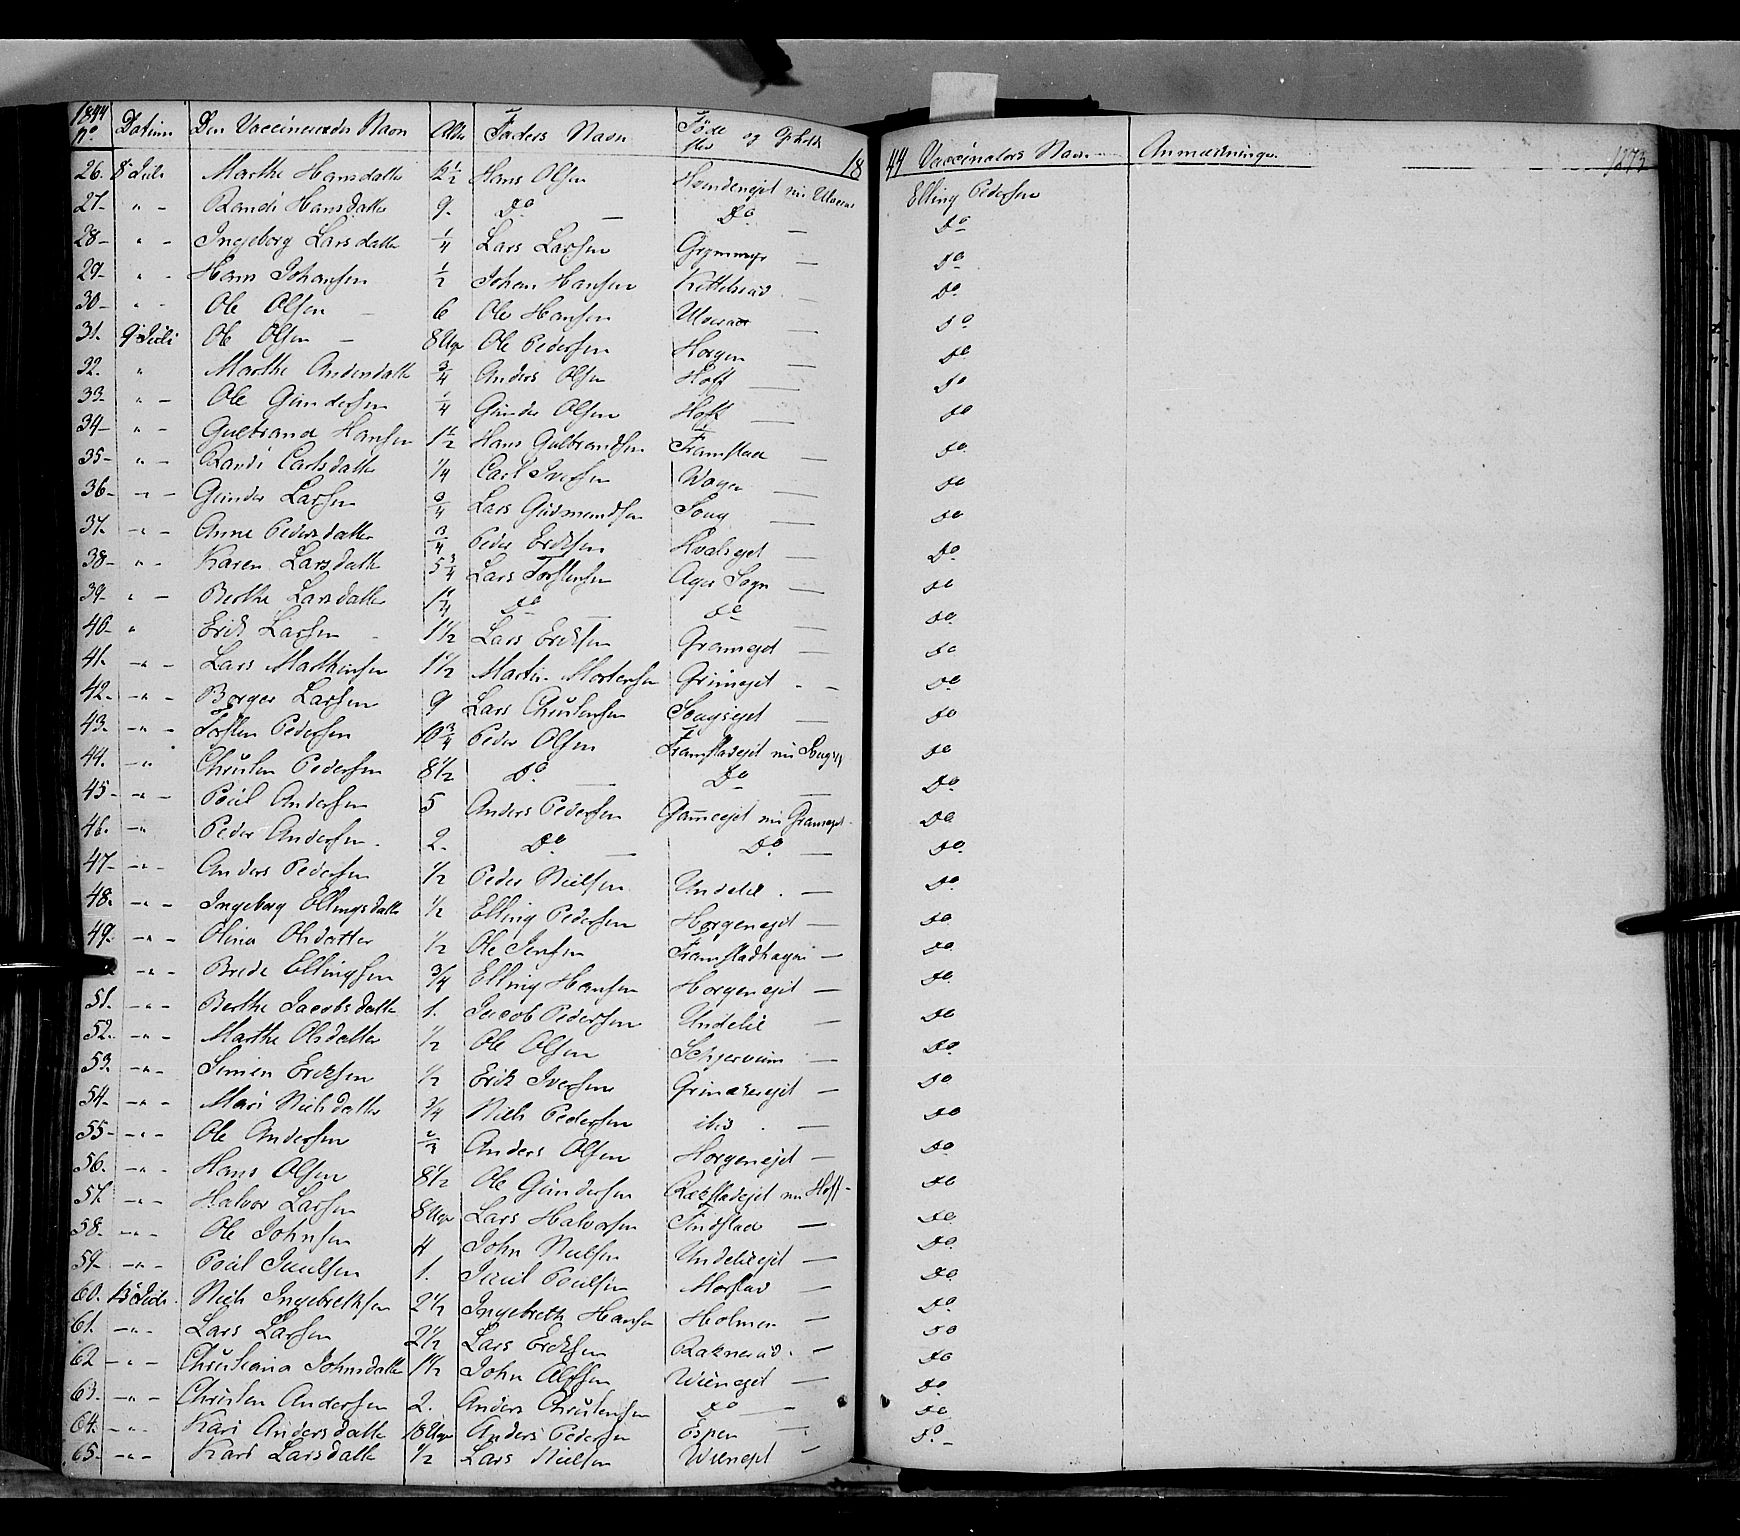 1844
No Datum Den Vaccineredes Navn Alder Faders Navn Føde og Opholds 1844 Vaccinators Navn Anmærkninger 1273
Sted
26. 8 Juli Marthe Hansdatter 12½ Hans Olsen nu Elling Pedersen
27. " - Randi Hansdatter 9. Do — Do — Do
28 - " - Ingeborg Larsdatter ¼ Lars Larsen — Do
29 - " - Hans Johansen ½ Johan Hansen Kittelsrud — Do
30 - " - Ole Olsen 6 Ole Hansen — Do
31. 9 Juli Ole Olsen — 8 Uger Ole Pedersen Horgen — Do
32. " Marthe Andersdatter ¾ Anders Olsen Hoff — Do
33. " - Ole Gundersen ¼ Gunder Olsen Hoff — Do
34 - " - Gulbrand Hansen 1½ Hans Gulbrandsen Framstad — Do
35 - " - Randi Carlsdatter ¼ Carl Iversen Wager — Do
36 - " - Gunder Larsen ¾ Lars Gudmundsen Soug — Do
37. - " - Anne Pedersdatter ¾ Peder Eriksen Hvalsejet — Do
38 - " - Karen Larsdatter 5¾ Lars Torstensen Ager Sogn — Do
39. " - Berthe Larsdatter 1¼ Do — Do — Do
40 - " Erik Larsen - 1½ Lars Eriksen Gramejet — Do
41. - " - Lars Marthinsen 1½ Martin Mortensen Grimejet - - Do
42. - " - Borger Larsen 9 Lars Christensen Sougsejet — Do
43. - " - Torsten Pedersen 10¾ Peder Olsen Framstadejet nu Do
44. - " Christen Pedersen 8½ Do — Do — Do
45 - - " - Poul Andersen 5 Anders Pedersen nu Gramejet. Do
46. - " Peder Andersen. 2. Do — Do. — Do.
47. - " - Anders Pedersen ½ Peder Nielsen Undelie. — Do.
48. - " - Ingeborg Ellingsdatter ½ Elling Pedersen Horgenejet — Do
49. - " - Olina Olsdatter ½ Ole Jensen Framstadhagen — Do
- " - Brede Ellingsen ¾ Elling Hansen Horgenejet — Do.
51. - " - Berthe Jacobsdatter 1. Jacob Pedersen Undelie — Do
52. - " - Marthe Olsdatter ½ Ole Olsen Schjerveim — Do.
53. - " - Simen Eriksen ½ Erik Iversen Grimakerejet — Do
54. - " - Mari Nielsdatter ¾ Niels Pedersen ibid. — Do
55 - - " - Ole Andersen Anders Olsen Horgenejet — Do
56. - " - Hans Olsen 8½ Ole Gundersen Rakstadejet nu Hoff - Do
57. - " - Halvor Larsen 8 Uger Lars Halvorsen Findstad — Do
58. - " - Ole Johnsen 4 John Nielsen Undelieejet — Do.
59. - " - Poul Juulsen 1. Juul Poulsen Morstad — Do
60. 13 Juli. Niels Ingebrethsen 2½ Ingebreth Hansen Holmen — Do.
61. - " - Lars Larsen 2½ Lars Eriksen Raknerud. — Do
62 - " - Christiana Johnsdatter 1½ John Alfsen Wienejet — Do
63. - " - Christen Andersen 2. Anders Christensen Do — Do
64. - " - Kari Andersdatter 18 Uger Anders Pedersen Espen — Do
65. - " - Kari Larsdatter ½ Lars Nielsen Wienejet — Do -